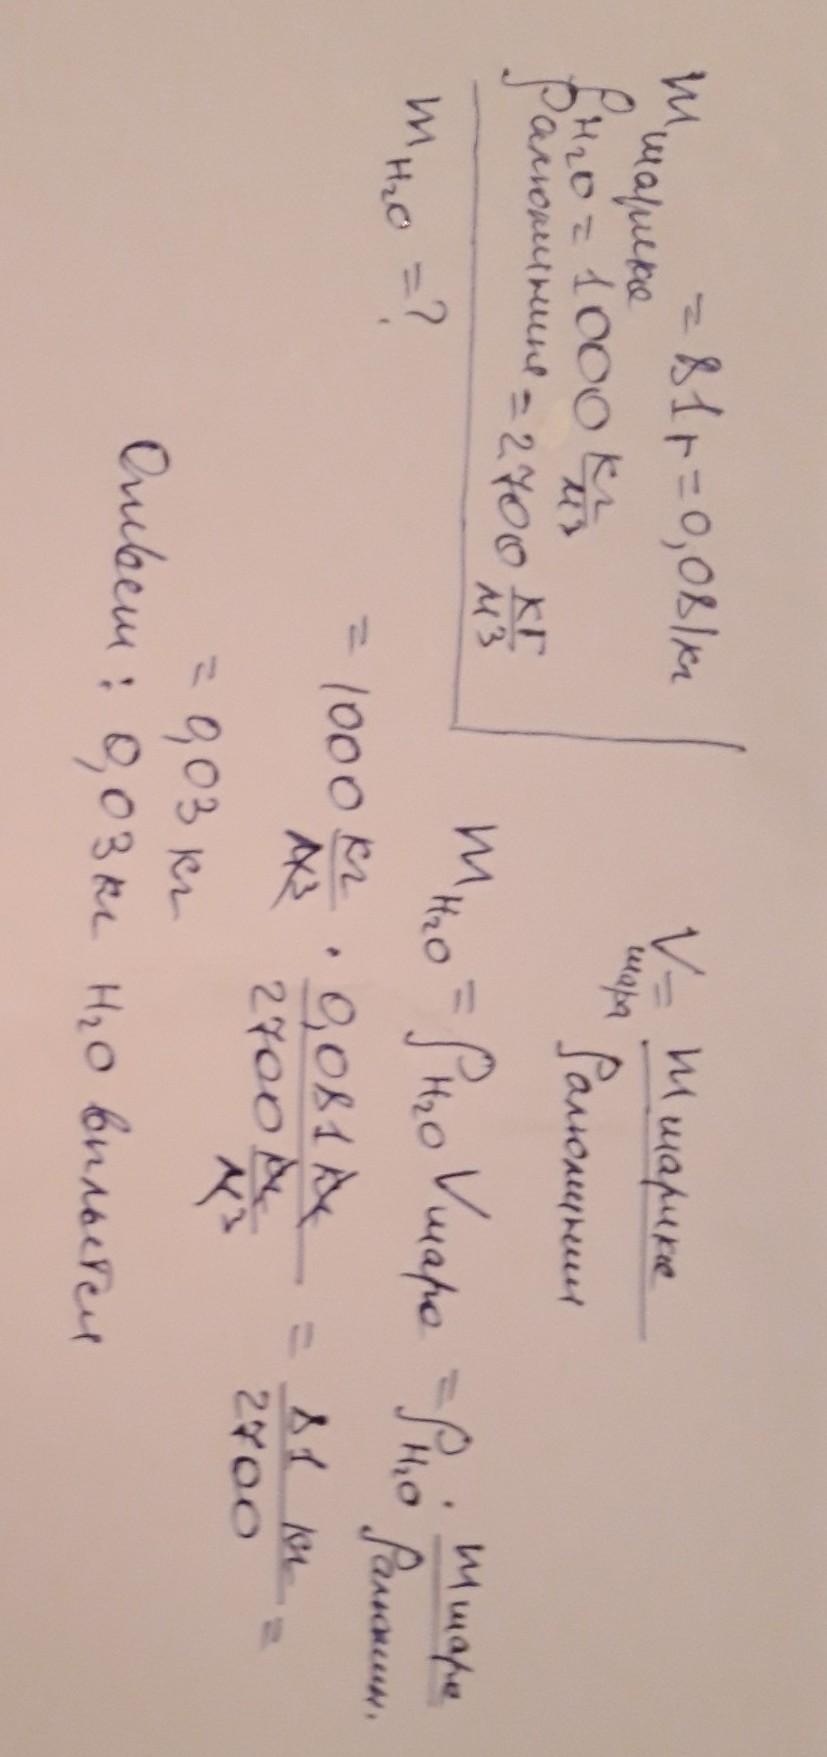 m шарика = 81 г = 0,081 кг
ρ H₂O = 1000 кг/м3
ρ алюминия = 2700 кг/м3
m H₂O = ?
V шара = m шарика / ρ алюминия
m H₂O = ρ H₂O V шара = ρ H₂O · m шара / ρ алюмин.
= 1000 кг/м3 · 0,081 кг / 2700 кг/м3 = 81 кг / 2700 =
= 0,03 кг
Ответ : 0,03 кг H₂O выльется